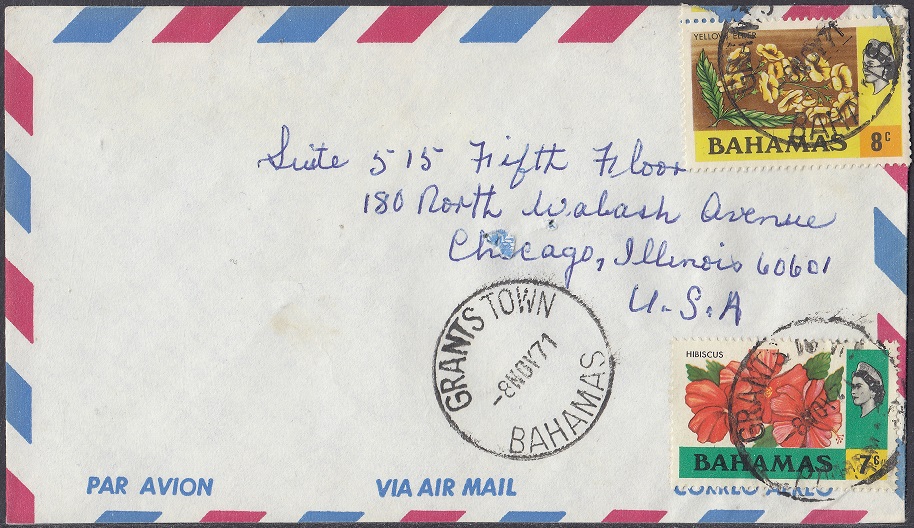 YELLOW ELDER
BAHAMAS 8c
Suite 515 Fifth Floor
180 North Wabash Avenue
Chicago, Illinois 60601
U.S.A
GRANTS TOWN
-8 NOV 71
BAHAMAS
HIBISCUS
BAHAMAS 7c
PAR AVION
VIA AIR MAIL
CORREO AEREO